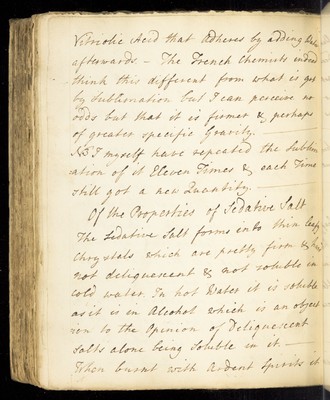 Vitriolic Acid that Adheres by adding Water
afterwards — The French Chemists indeed
think this different from what is got
by Sublimation but I can perceive no
odds but that it is firmer & perhaps
of greater specific Gravity.
NB I myself have repeated the Sublim
ation of it Eleven Times & each Time
still got a new Quantity.
Of the Properties of Sedative Salt
The Sedative Salt forms into thin leafy
Chrystals which are pretty firm &
not deliquescent & not soluble in
cold water. In hot Water it is soluble
as it is in Alcohol which is an object
ion to the Opinion of Deliquescent
Salts alone being soluble in it —
When burnt with Ardent Spirits it